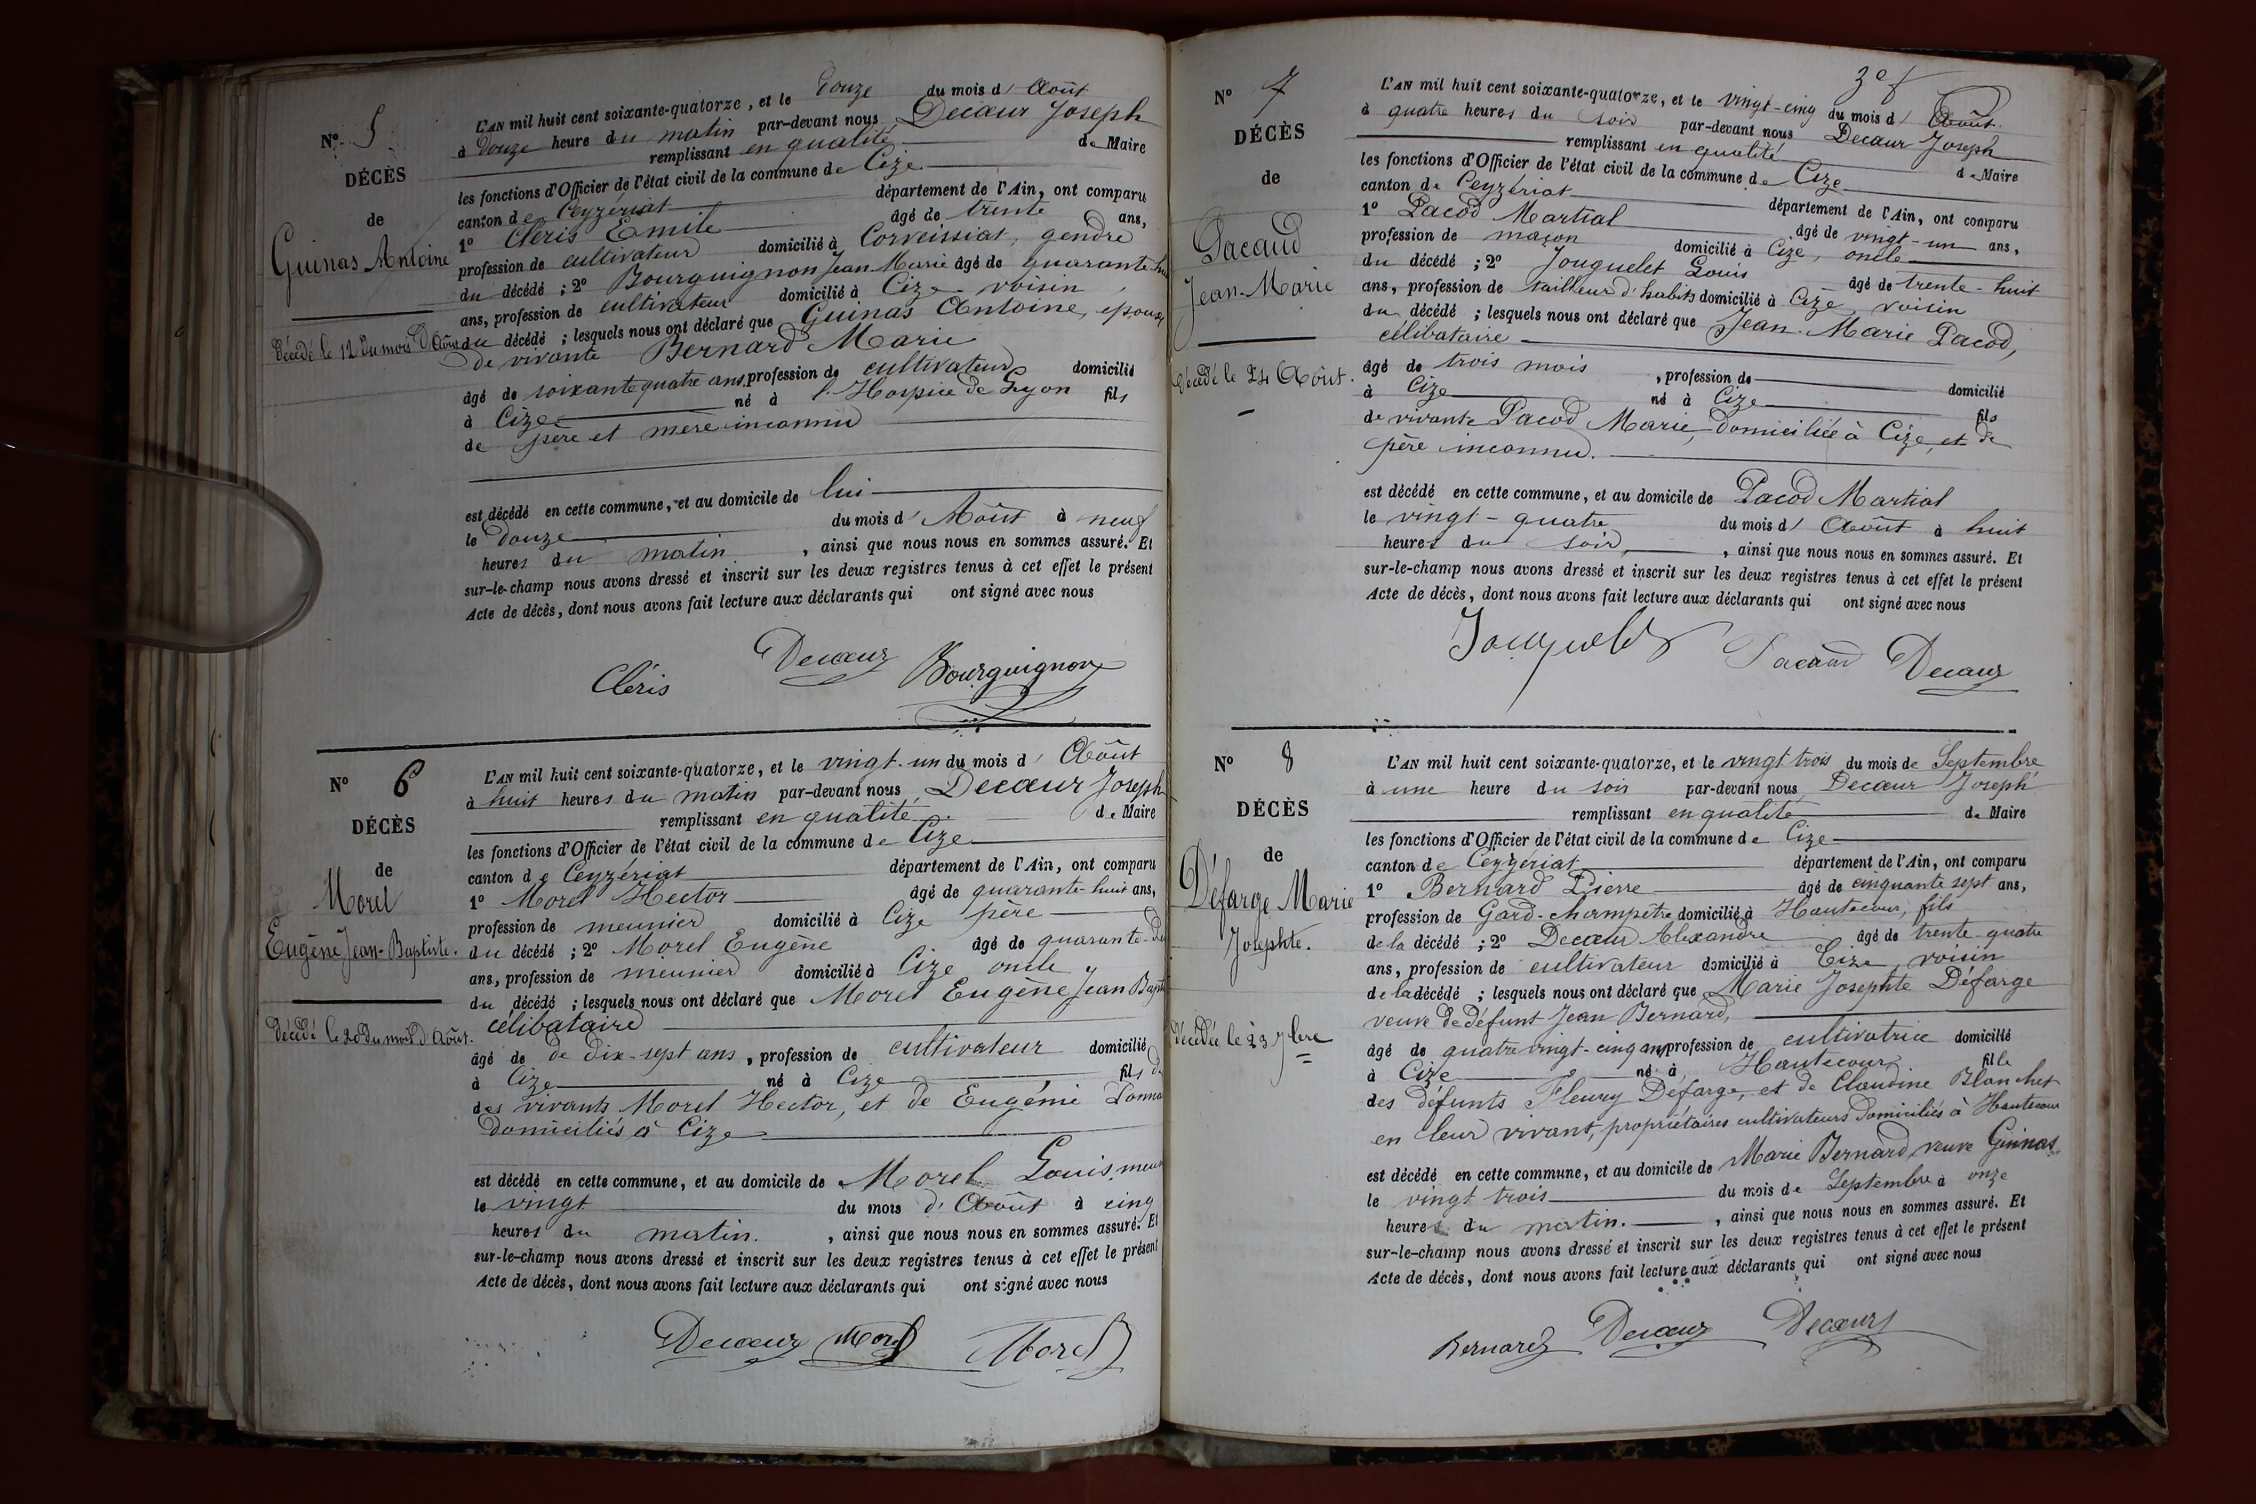 N° 5
DÉCÈS
de
Guinas Antoine
Décédé le 12 du mois d'Août
L'AN mil huit cent soixante-quatorze, et le douze du mois d' Août
à douze heure du matin par-devant nous Decœur Joseph
remplissant en qualité de Maire
les fonctions d'Officier de l'état civil de la commune de Cize
canton de Ceyzériat département de l'Ain, ont comparu
1° Cléris Emile âgé de trente ans,
profession de cultivateur domicilié à Corveissiat, gendre
du décédé ; 2° Bourguignon Jean Marie âgé de quarante
ans, profession de cultivateur domicilié à Cize voisin
du décédé ; lesquels nous ont déclaré que Guinas Antoine, époux
de vivante Bernard Marie
âgé de soixante quatre ans, profession de cultivateur domicilié
à Cize né à l'Hospice de Lyon fils
de père et mère inconnu
est décédé en cette commune, et au domicile de lui
le douze du mois d' Août à neuf
heures du matin, ainsi que nous nous en sommes assuré. Et
sur-le-champ nous avons dressé et inscrit sur les deux registres tenus à cet effet le présent
Acte de décès, dont nous avons fait lecture aux déclarants qui ont signé avec nous
Cléris Decœur Bourguignon
N° 6
DÉCÈS
de
Morel
Eugène Jean-Baptiste.
Décédé le 20 du mois d'Août.
L'AN mil huit cent soixante-quatorze, et le vingt-un du mois d' Août
à huit heures du matin par-devant nous Decœur Joseph
remplissant en qualité de Maire
les fonctions d'Officier de l'état civil de la commune de Cize
canton de Ceyzériat département de l'Ain, ont comparu
1° Morel Hector âgé de quarante-huit ans,
profession de meunier domicilié à Cize père
du décédé ; 2° Morel Eugène âgé de quarante-
ans, profession de meunier domicilié à Cize oncle
du décédé ; lesquels nous ont déclaré que Morel Eugène Jean
célibataire
âgé de de dix-sept ans, profession de cultivateur domicilié
à Cize né à Cize fils
des vivants Morel Hector, et de Eugénie
domiciliés à Cize
est décédé en cette commune, et au domicile de Morel Louis,
le vingt du mois d' Août à cinq
heures du matin., ainsi que nous nous en sommes assuré. Et
sur-le-champ nous avons dressé et inscrit sur les deux registres tenus à cet effet le présent
Acte de décès, dont nous avons fait lecture aux déclarants qui ont signé avec nous
Decœur Morel Morel
N° 7
DÉCÈS
de
Pacaud
Jean-Marie
Décédé le 24 Août.
3e f
L'AN mil huit cent soixante-quatorze, et le vingt-cinq du mois d' Août.
à quatre heures du soir par-devant nous Decœur Joseph
remplissant en qualité de Maire
les fonctions d'Officier de l'état civil de la commune de Cize
canton de Ceyzériat département de l'Ain, ont comparu
1° Pacod Martial âgé de vingt-un ans,
profession de maçon domicilié à Cize, oncle
du décédé ; 2° Jouguelet Louis âgé de trente-huit
ans, profession de tailleur d'habits domicilié à Cize, voisin
du décédé ; lesquels nous ont déclaré que Jean-Marie Pacod,
célibataire
âgé de trois mois, profession de domicilié
à Cize né à Cize fils
de vivante Pacod Marie, domiciliée à Cize, et de
père inconnu.
est décédé en cette commune, et au domicile de Pacod Martial
le vingt-quatre du mois d' Août à huit
heures du soir, ainsi que nous nous en sommes assuré. Et
sur-le-champ nous avons dressé et inscrit sur les deux registres tenus à cet effet le présent
Acte de décès, dont nous avons fait lecture aux déclarants qui ont signé avec nous
Pacaud Decœur
N° 8
DÉCÈS
de
Défarge Marie
Josephte.
Décédée le 23 7bre
L'AN mil huit cent soixante-quatorze, et le vingt trois du mois de Septembre
à une heure du soir par-devant nous Decœur Joseph
remplissant en qualité de Maire
les fonctions d'Officier de l'état civil de la commune de Cize
canton de Ceyzériat département de l'Ain, ont comparu
1° Bernard Pierre âgé de cinquante sept ans,
profession de Gard-champêtre domicilié à Hautecour, fils
de la décédé ; 2° Decœur Alexandre âgé de trente-quatre
ans, profession de cultivateur domicilié à Cize, voisin
de la décédé ; lesquels nous ont déclaré que Marie Josephte Défarge
veuve de défunt Jean Bernard,
âgé de quatre vingt-cinq ans, profession de cultivatrice domicilié
à Cize né à Hautecour fille
des défunts Fleury Défarge, et de Claudine Blanchet
en leur vivant, propriétaires cultivateurs domiciliés à Hautecour
est décédé en cette commune, et au domicile de Marie Bernard, veuve Guinas
le vingt trois du mois de Septembre à onze
heures du matin., ainsi que nous nous en sommes assuré. Et
sur-le-champ nous avons dressé et inscrit sur les deux registres tenus à cet effet le présent
Acte de décès, dont nous avons fait lecture aux déclarants qui ont signé avec nous
Bernard Decœur Decœur